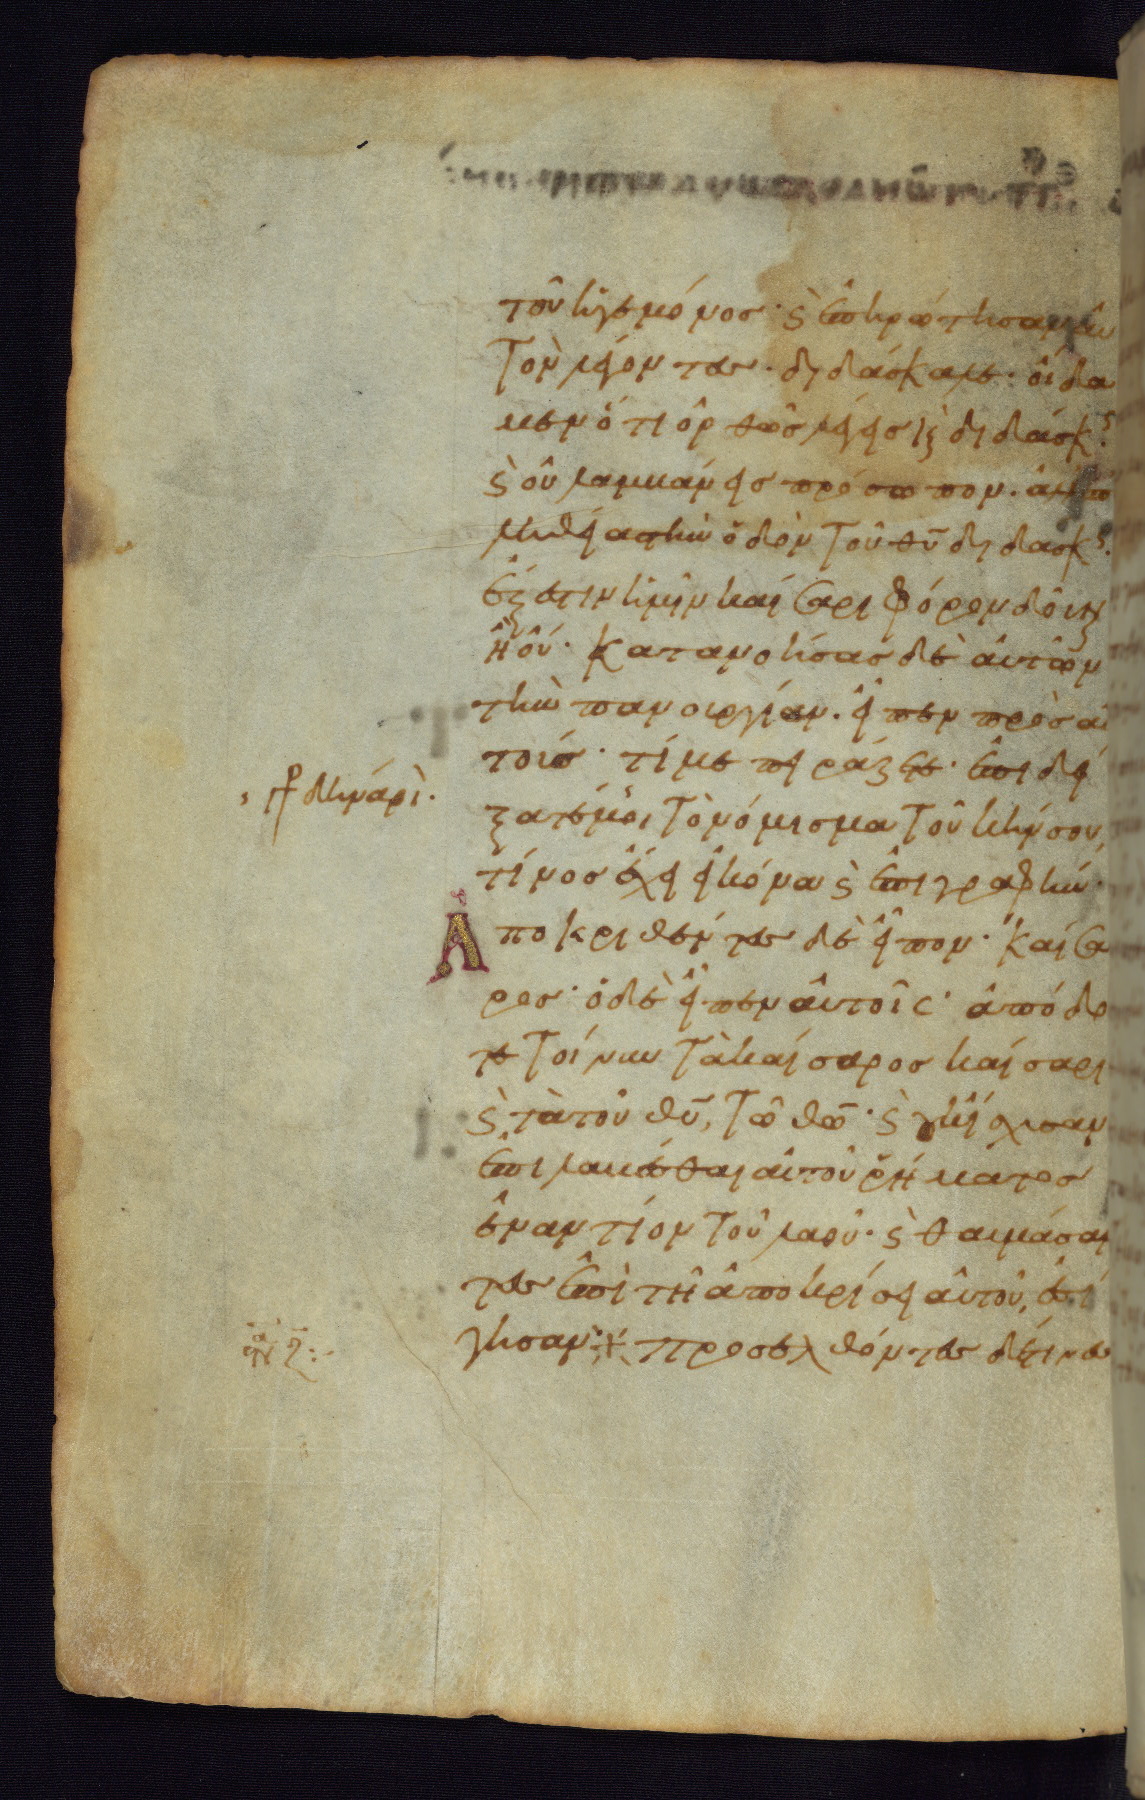 τοῦ ἡγεμόνος· ϛ ἐπηρώτησαν αὐ
τὸν λέγοντες· διδάσκαλε· οἴδα
μεν ὅτι ὀρθῶς λέγεις ϗ διδάσκϛ·
ϛ οὐ λαμβάνεις πρόσωπον· ἀλλ' ἐπ
ἀληθείας τὴν ὁδὸν τοῦ θυ διδάσκϛ.
ἔξεστιν ἡμῖν καίσαρι φόρον δοῦν
ἢ οὔ· κατανοήσας δὲ αὐτῶν
τὴν πανουργίαν· εἶπεν πρὸς αὐ
τούς· τί με πειράζετε· ἐπιδεί
ξατέ μοι τὸ νόμισμα τοῦ κήνσου,
τίνος ἔχει εἰκόνα ϛ ἐπιγραφήν·
Ἀποκριθέντες δὲ εἶπον· καίσα
ρος· ὁ δὲ εἶπεν αὐτοῖς· ἀπόδο
τε τοίνυν τὰ καίσαρος καίσαρι
ϛ τὰ τοῦ θυ, τῶ θω· ϛ οὐκ ἴσχυσαν
ἐπιλαβέσθαι αὐτοῦ ῥήματος
ἐναντίον τοῦ λαοῦ· ϛ θαυμάσαν
τες ἐπὶ τῆ ἀποκρίσει αὐτοῦ, ἐσί
γησαν: προσελθόντες δέ τινες
δηνάρι·